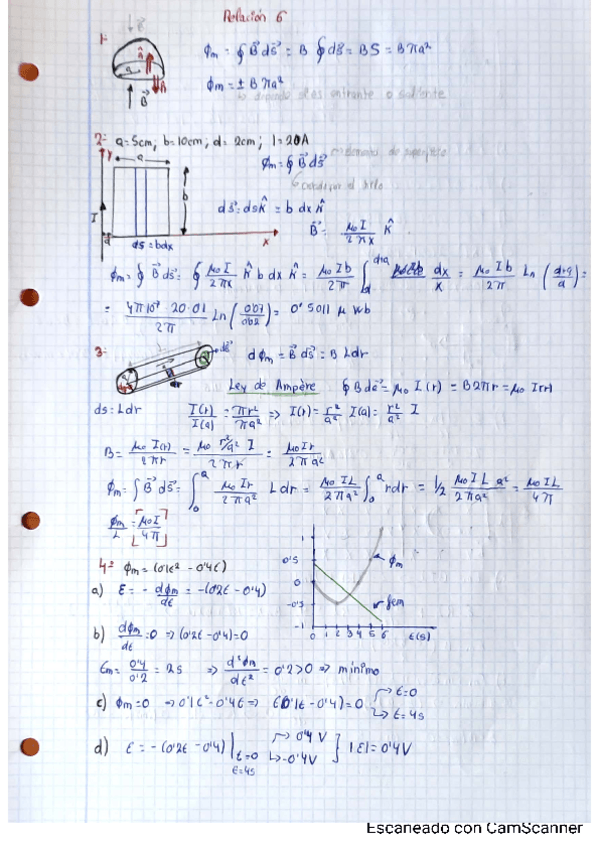 Relación 6
1-
Φm = ∮ B⃗ ds⃗ = B ∮ ds⃗ = BS = Bπa²
Φm = ± Bπa²
↳ depende si es entrante o saliente
2- a=5cm; b=10cm; d= 2cm; I=20A
Φm = ∮ B⃗ ds⃗ → elemento de superficie
ds⃗ = ds k̂ = b dx k̂
B⃗ = μ₀ I / 2πx k̂
ds = bdx
Φm = ∮ B⃗ ds⃗ = ∮ μ₀ I / 2πx k̂ b dx k̂ = μ₀ Ib / 2π ∫ dx / x = μ₀ Ib / 2π Ln (d+a / d) =
= 4π10⁻⁷ 20·0'1 / 2π Ln (0'07 / 0'02) = 0'5011 μ Wb
3-
dΦm = B⃗ ds⃗ = B Ldr
Ley de Ampère ∮ Bdl⃗ = μ₀ I(r) = B2πr = μ₀ I(r)
ds = Ldr I(r) / I(a) = πr² / πa² ⇒ I(r) = r² / a² I(a) = r² / a² I
B = μ₀ I(r) / 2πr = μ₀ r²/a² I / 2πr = μ₀ Ir / 2πa²
Φm = ∫ B⃗ ds⃗ = ∫₀ᵃ μ₀ Ir / 2πa² Ldr = μ₀ IL / 2πa² ∫₀ᵃ rdr = 1/2 μ₀ IL a² / 2πa² = μ₀ IL / 4π
Φm / L = [μ₀ I / 4π]
4- Φm = (0'1t² - 0'4t)
a) ε = - dΦm / dt = -(0'2t - 0'4)
b) dΦm / dt = 0 ⇒ (0'2t - 0'4) = 0
tm = 0'4 / 0'2 = 2s ⇒ d²Φm / dt² = 0'2 > 0 ⇒ mínimo
c) Φm = 0 ⇒ 0'1t² - 0'4t ⇒ t(0'1t - 0'4) = 0 → t=0
↳ t=4s
d) ε = -(0'2t - 0'4) | t=0 → 0'4 V
t=4s ↳ -0'4 V } |ε| = 0'4V
1
0'5
0
-0'5
-1
0 1 2 3 4 5 6 t(s)
Φm
fem
Escaneado con CamScanner